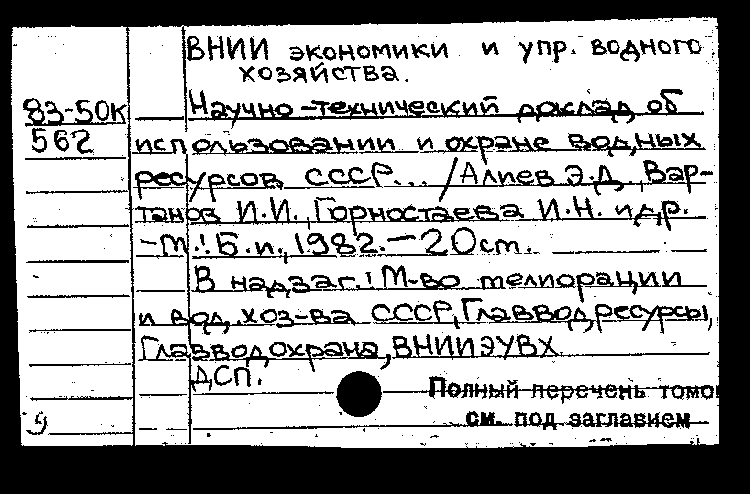 ВНИИ экономики и упр. водного
хозяйства.
83-50К Научно-технический доклад об
562 использовании и охране водных
ресурсов СССР... /Алиев Э.Д., Вар-
танов И.И., Горностаева И.Н. и др.
-М.: Б.и., 1982.-20 ст.
В надзаг.: М-во мелиорации
и вод. хоз-ва СССР, Главводресурсы,
Главводохрана, ВНИИЭУВХ
ДСП.
Полный перечень томо
см. под заглавием
9